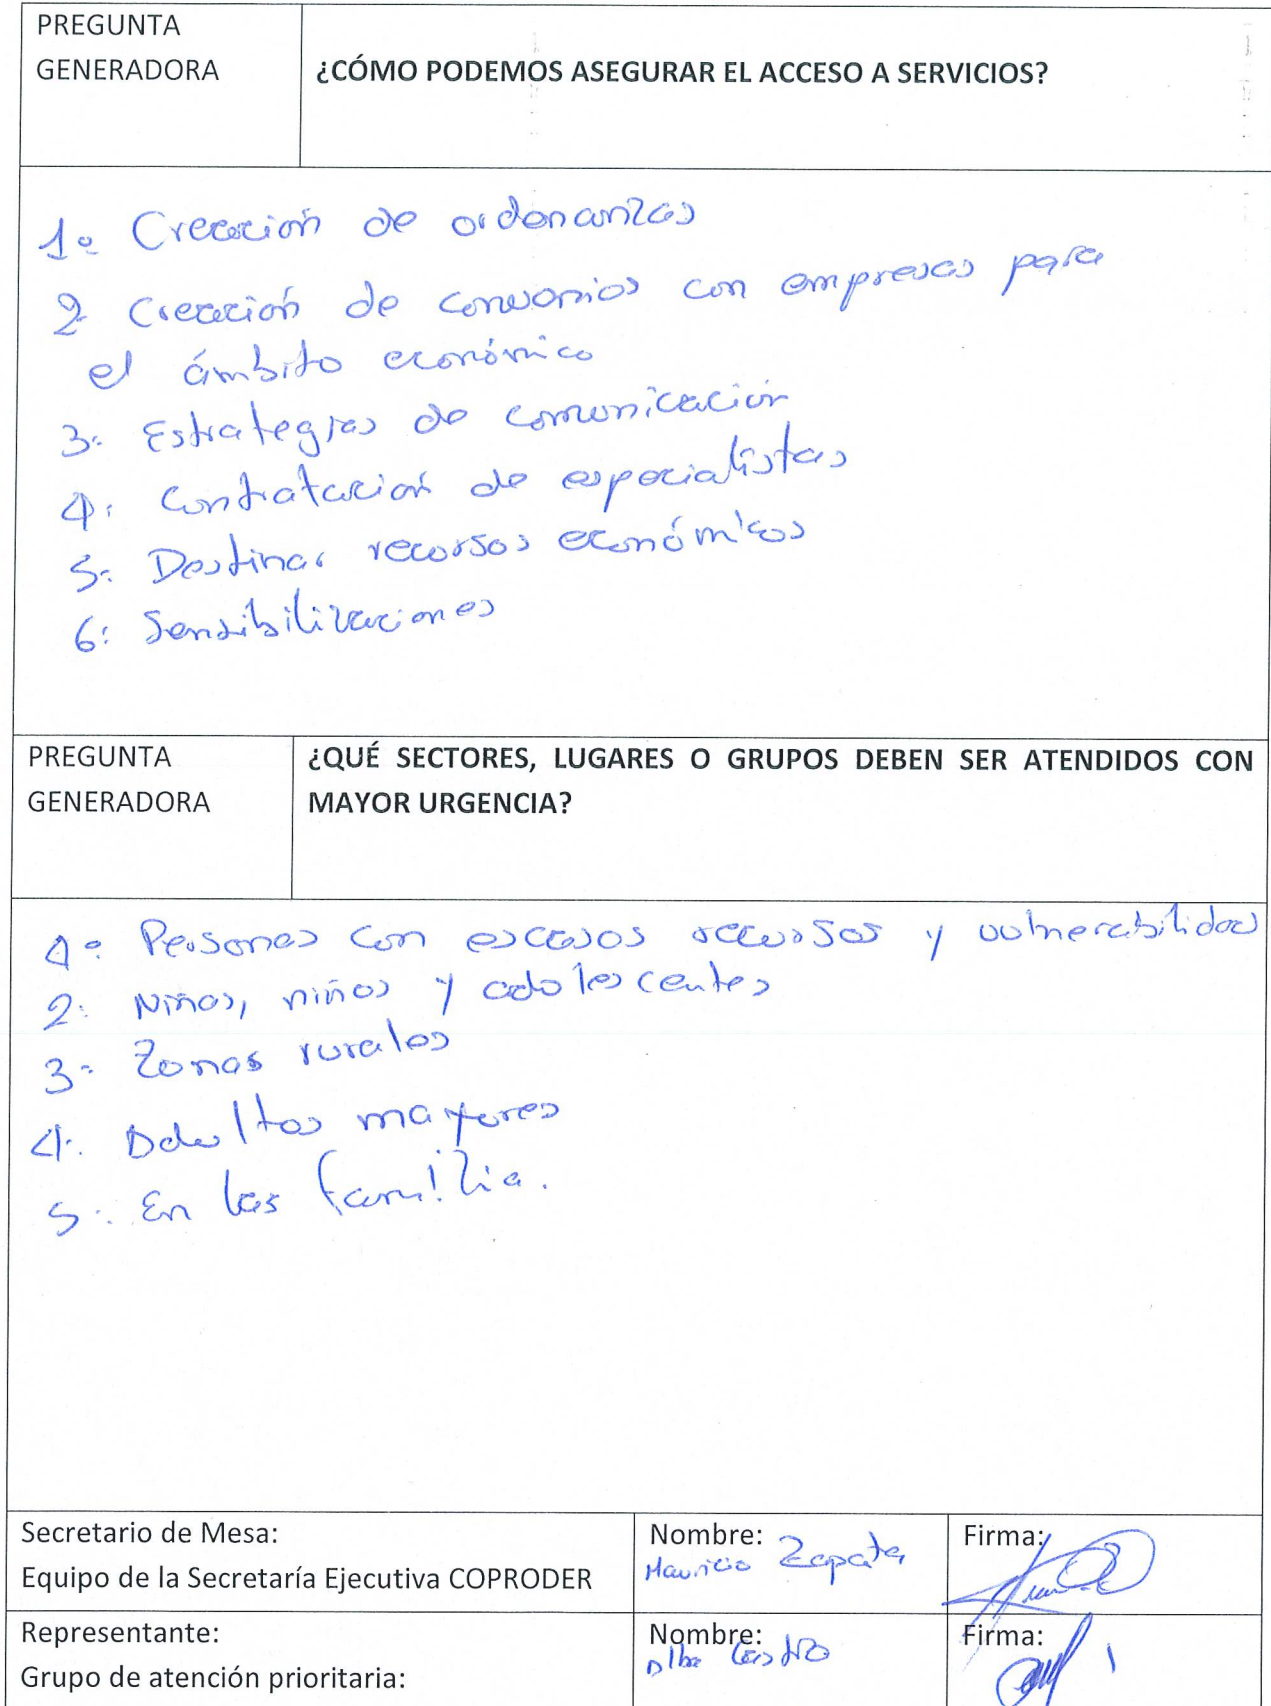 PREGUNTA
GENERADORA
¿CÓMO PODEMOS ASEGURAR EL ACCESO A SERVICIOS?
1.- Creación de ordenanzas
2 Creación de convenios con empresas para
el ámbito económico
3.- Estrategias de comunicación
4.- Contratación de especialistas
5.- Destinar recursos económicos
6.- Sensibilizaciones
PREGUNTA
GENERADORA
¿QUÉ SECTORES, LUGARES O GRUPOS DEBEN SER ATENDIDOS CON
MAYOR URGENCIA?
1.- Personas con escasos recursos y vulnerabilidad
2.- Niñas, niños y adolescentes
3.- Zonas rurales
4.- Adultos mayores
5.- En las familia.
Secretario de Mesa:
Equipo de la Secretaría Ejecutiva COPRODER
Nombre: Mauricio Zapata
Firma:
Representante:
Grupo de atención prioritaria:
Nombre:
Alba Castro
Firma: